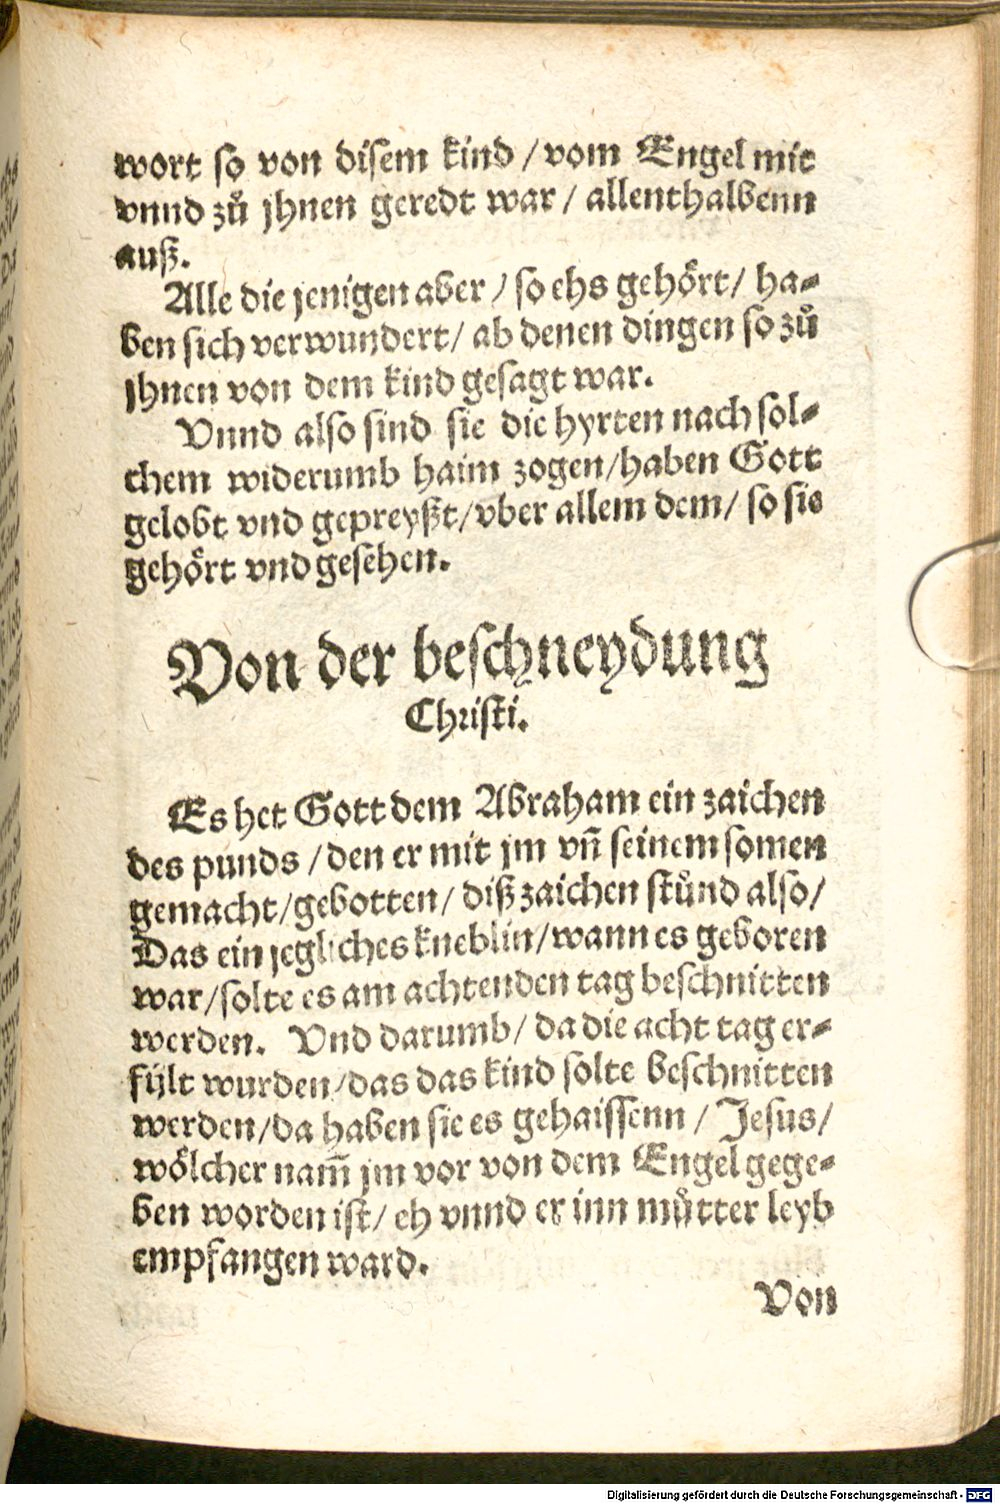 wort so von disem kind / vom Engel mit
vnnd zů jhnen geredt war / allenthalbenn
auß.
Alle die jenigen aber / so ehs gehört / ha-
ben sich verwundert / ab denen dingen so zů
jhnen von dem kind gesagt war.
Vnnd also sind sie die hyrten nach sol-
chem widerumb haim zogen / haben Gott
gelobt vnd gepreyßt / vber allem dem / so sie
gehört vnd gesehen.
Von der beschneydung
Christi.
Es het Gott dem Abraham ein zaichen
des punds / den er mit jm vñ seinem somen
gemacht / gebotten / diß zaichen stůnd also /
Das ein jegliches kneblin / wann es geboren
war / solte es am achtenden tag beschnitten
werden. Vnd darumb / da die acht tag er-
fült wurden / das das kind solte beschnitten
werden / da haben sie es gehaissenn / Jesus /
wölcher nam̃ jm vor von dem Engel gege-
ben worden ist / eh vnnd er inn můtter leyb
empfangen ward.
Von
Digitalisierung gefördert durch die Deutsche Forschungsgemeinschaft - DFG